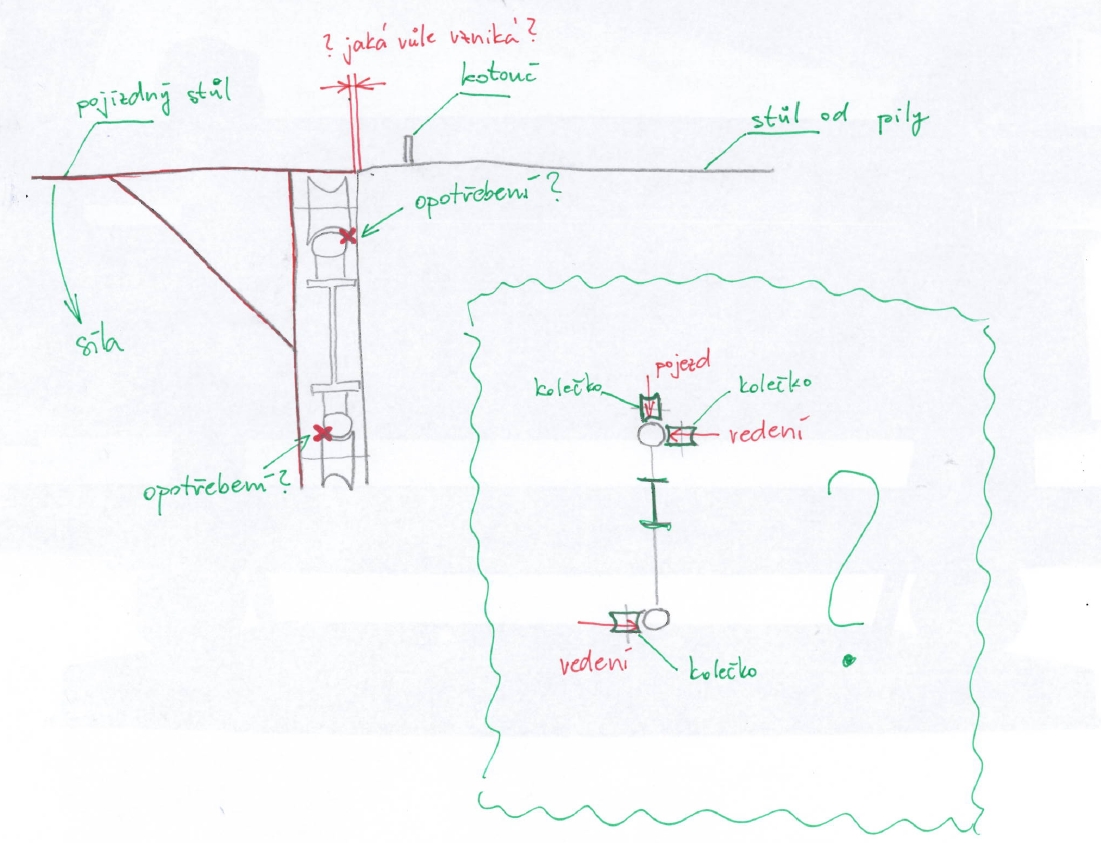 ? jaká vůle vzniká ?
pojízdný stůl
kotouč
stůl od pily
opotřebení ?
síla
opotřebení ?
pojezd
kolečko
kolečko
vedení
?
vedení
kolečko